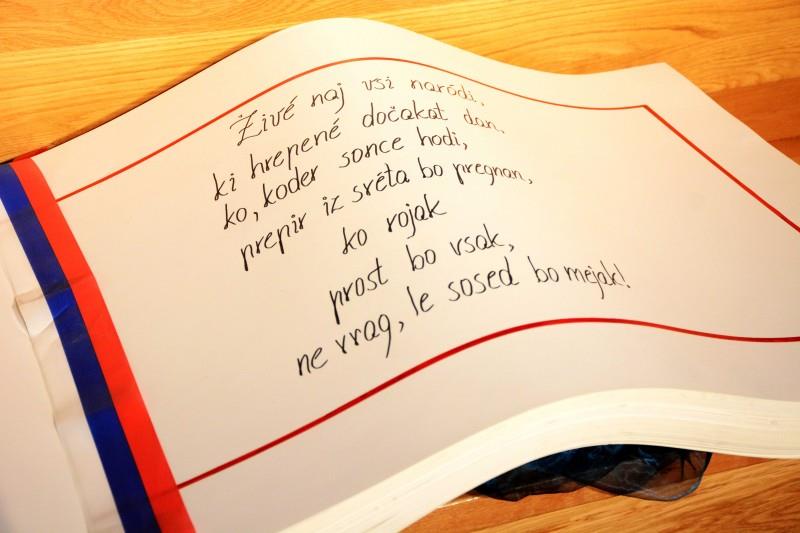 Živé naj vsi naródi,
ki hrepené dočakat dan,
ko, koder sonce hodi,
prepir iz svéta bo pregnan,
ko rojak
prost bo vsak,
ne vrag, le sosed bo mejak!